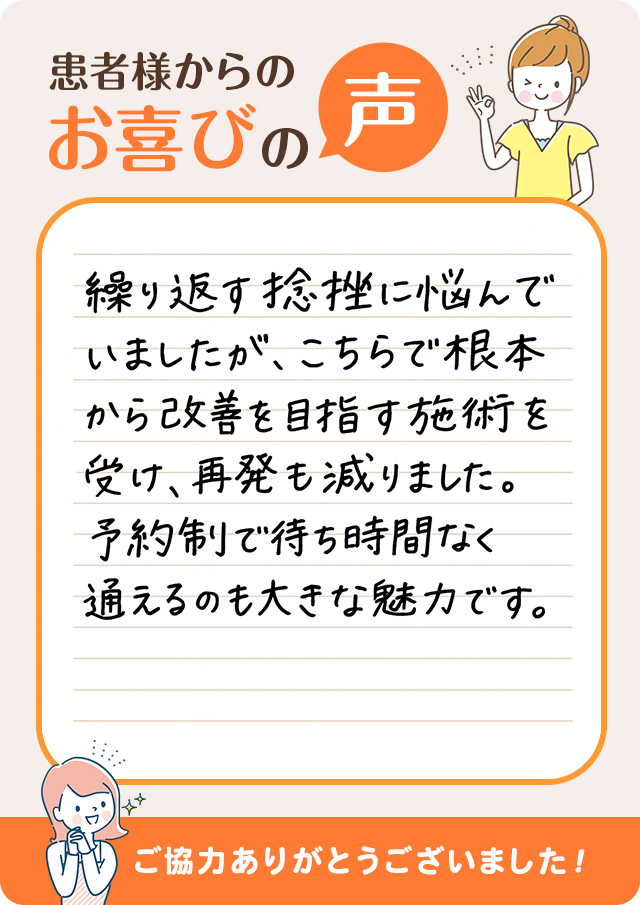 患者様からの
お喜びの声
繰り返す捻挫に悩んで
いましたが、こちらで根本
から改善を目指す施術を
受け、再発も減りました。
予約制で待ち時間なく
通えるのも大きな魅力です。
ご協力ありがとうございました！